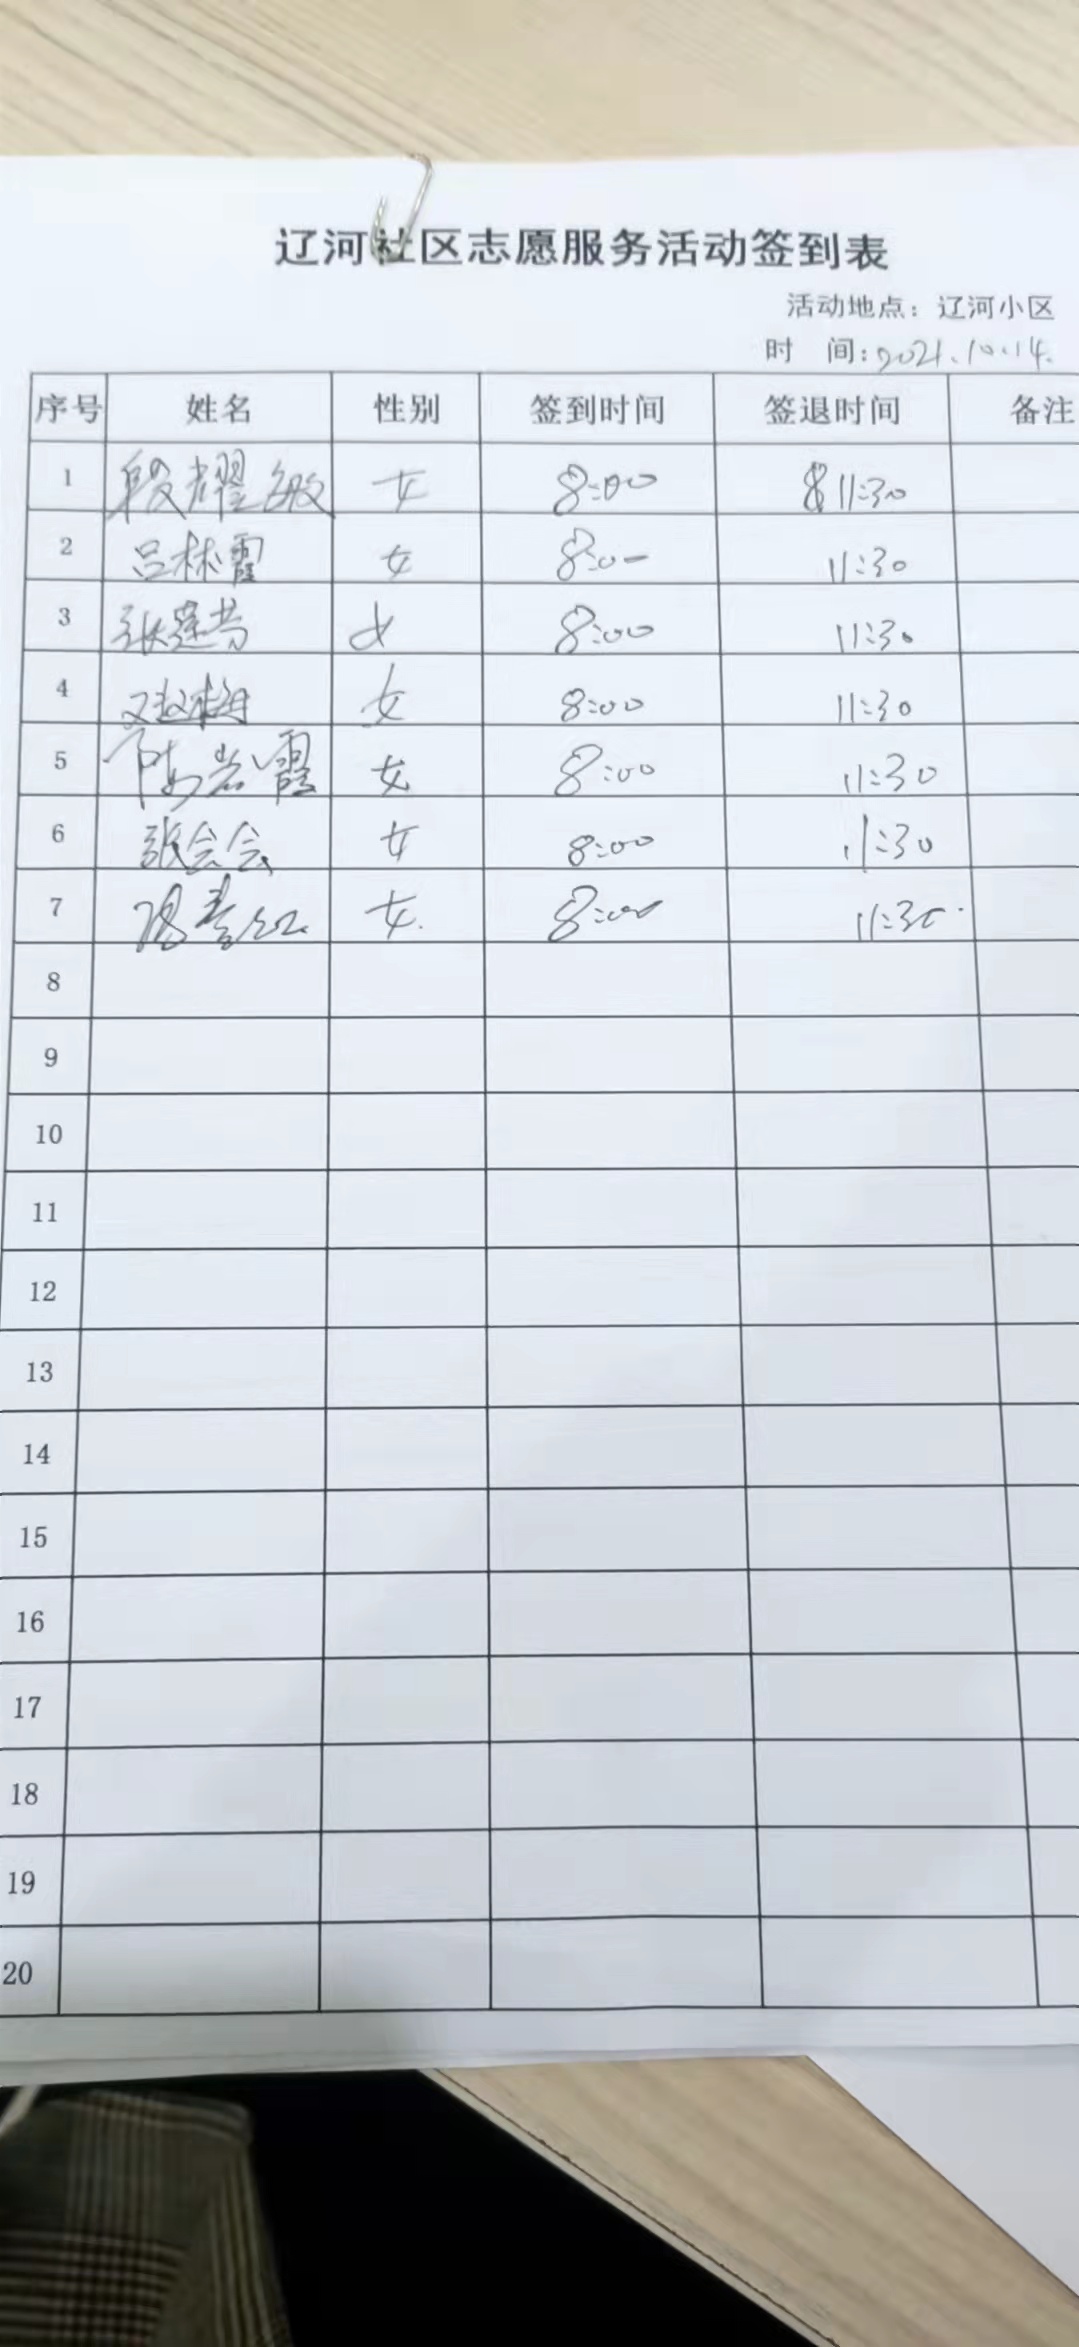 辽河社区志愿服务活动签到表
活动地点：辽河小区
时 间：2021.10.14.
序号 姓名 性别 签到时间 签退时间 备注
1 段耀敏 女 8:00 11:30
2 吕林霞 女 8:00 11:30
3 张莲芳 女 8:00 11:30
4 女 8:00 11:30
5 陶岩霞 女 8:00 11:30
6 张会会 女 8:00 11:30
7 女. 8:00 11:30
8
9
10
11
12
13
14
15
16
17
18
19
20